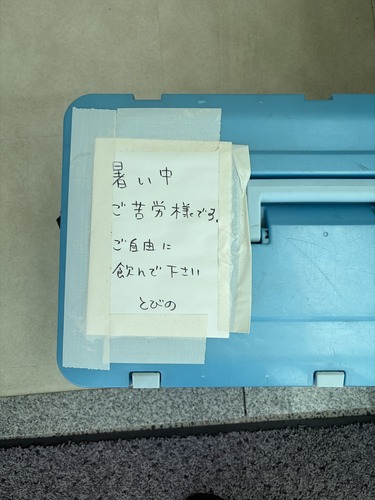 暑い中
ご苦労様です。
ご自由に
飲んで下さい
とびの